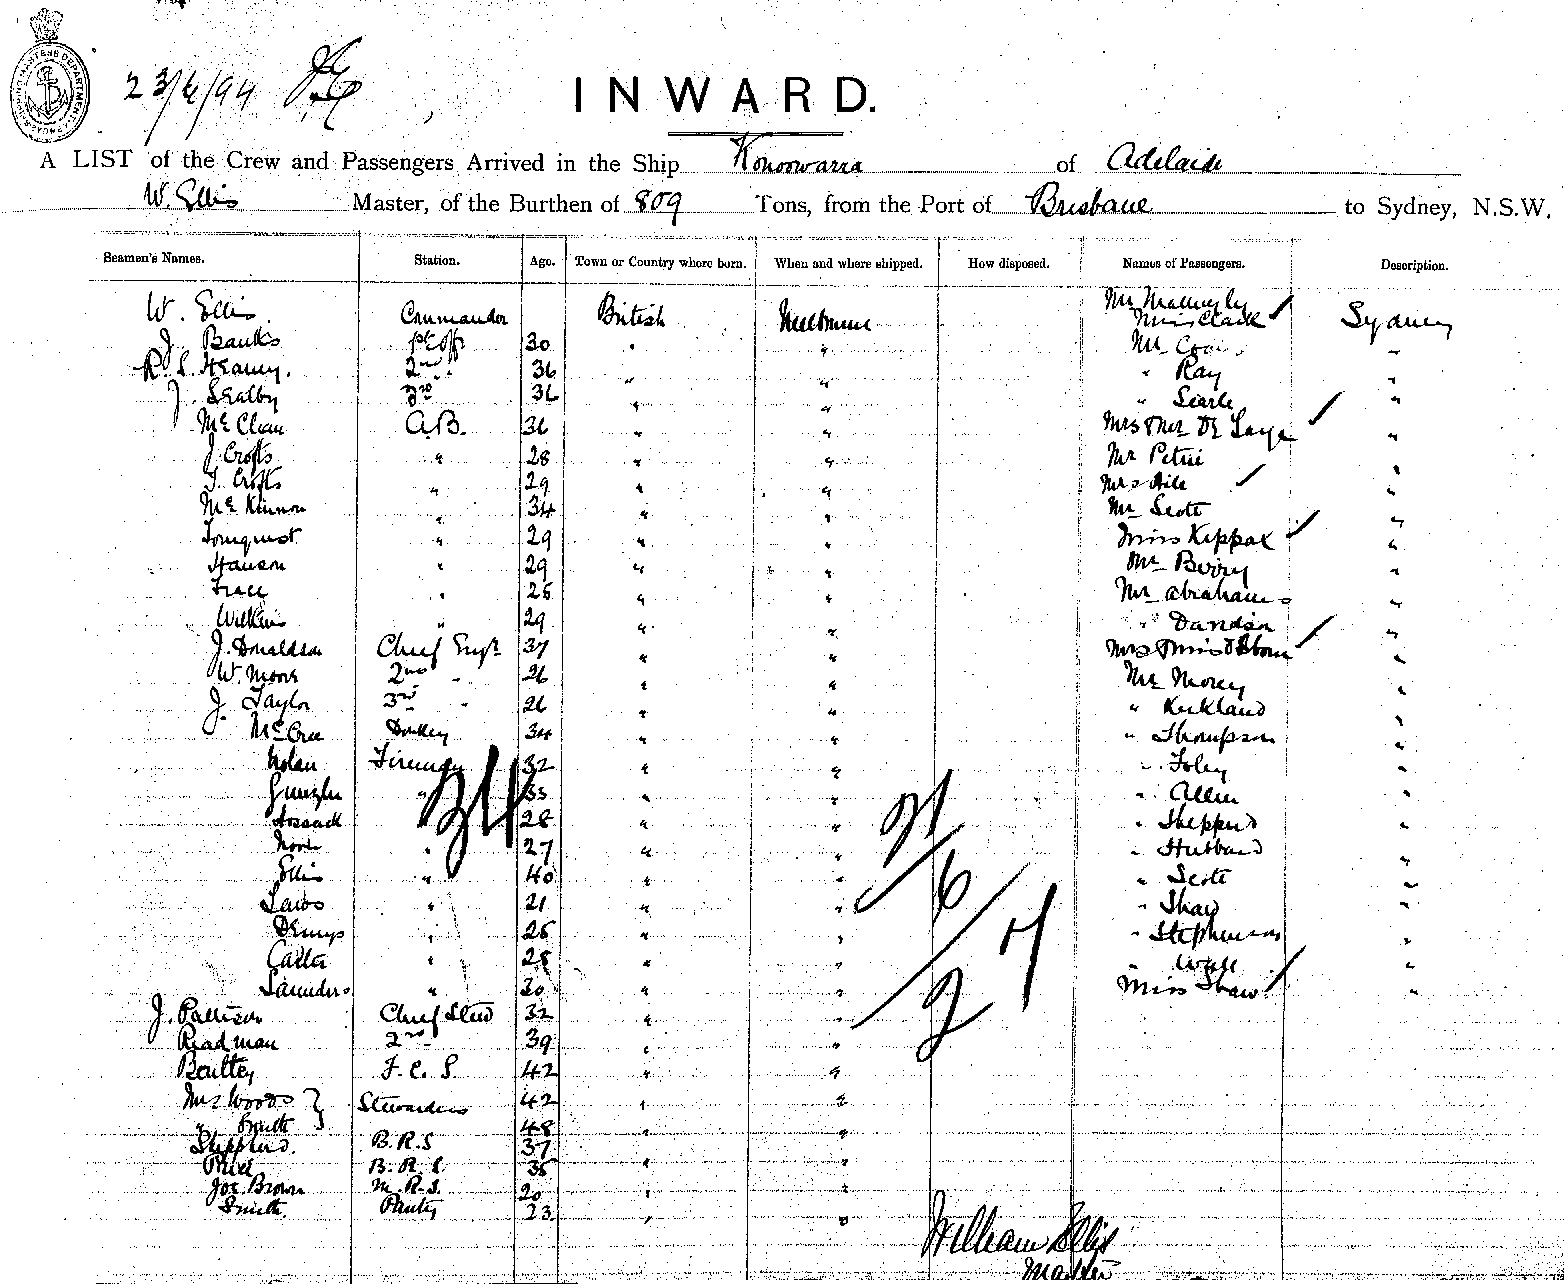 23/6/94
INWARD.
A LIST of the Crew and Passengers Arrived in the Ship Konoowarra of Adelaide
W. Ellis Master, of the Burthen of 809 Tons, from the Port of Brisbane to Sydney, N.S.W.
Seamen's Names. Station. Age. Town or Country where born. When and where shipped. How disposed. Names of Passengers. Description.
W. Ellis. Commander British Melbourne Mr Mattingly Sydney
Miss Clark
J Banks 1st Off 30 " " Mr "
R. S. Heaney. 2nd " 36 " " " Ray "
J. Sealby 3rd 36 " " " Searle "
McClean A.B. 36 " " Mrs & Mr De Large "
J. Crofts " 28 " " Mr Petrie "
T. Crofts " 29 " " Mrs Hile "
McKinnon " 34 " " Mr Scott "
Tornquist " 29 " " Miss Kippax "
Hanson " 29 " " Mr Berry "
" 25 " " Mr Abrahams "
Wilkins " 29 " " " Davidson "
J. Donaldson Chief Engr 37 " " Mrs & Miss "
W. Moore 2nd " 26 " " Mr Morey "
J. Taylor 3rd " 26 " " " Kirkland "
McCree Donkey 34 " " " Thompson "
Nolan Fireman 32 " " " Foley "
" 33 " " " Allen "
Hossack " 28 " " " Shepperd "
" 27 " " " Hubbard "
Ellis " 40 " " " Scott "
Laws " 21 " " " Shaw "
Demys " 25 " " " Stephenson "
Carter " 28 " " " Wall "
Saunders " 30 " " Miss Shaw "
J. Pattison Chief Stew 32 " "
Readman 2nd 39 " "
Boultey F. C. S 42 " "
Mrs Woods } Stewardess 42 " "
" Smith 48 " "
Shepherd. B.R.S 37
Price B. R. S. 35 " "
Joe Brown M. R. S. 20 " "
Smith. Pantry 23 " "
34
21/6/27
William Ellis
Master